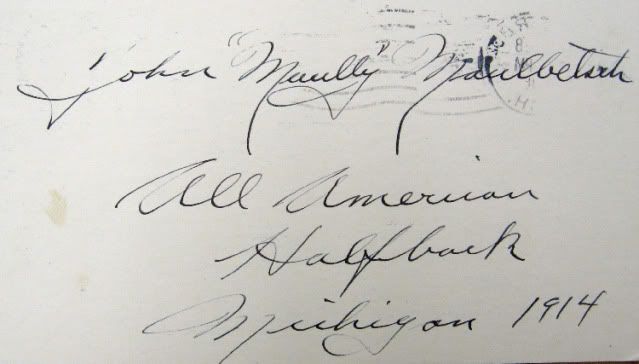 John "Maully" Maulbetsch
All American
Halfback
Michigan 1914